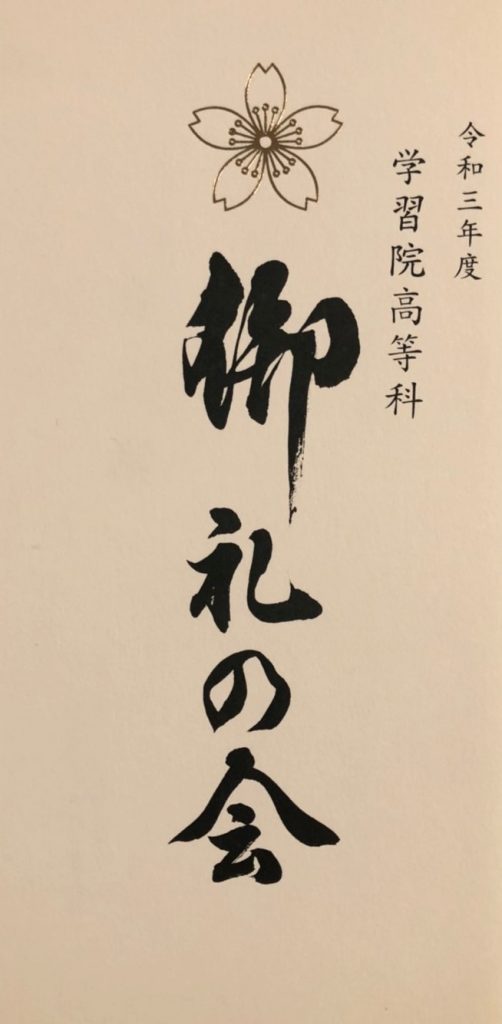 令和三年度
学習院高等科
御礼の会